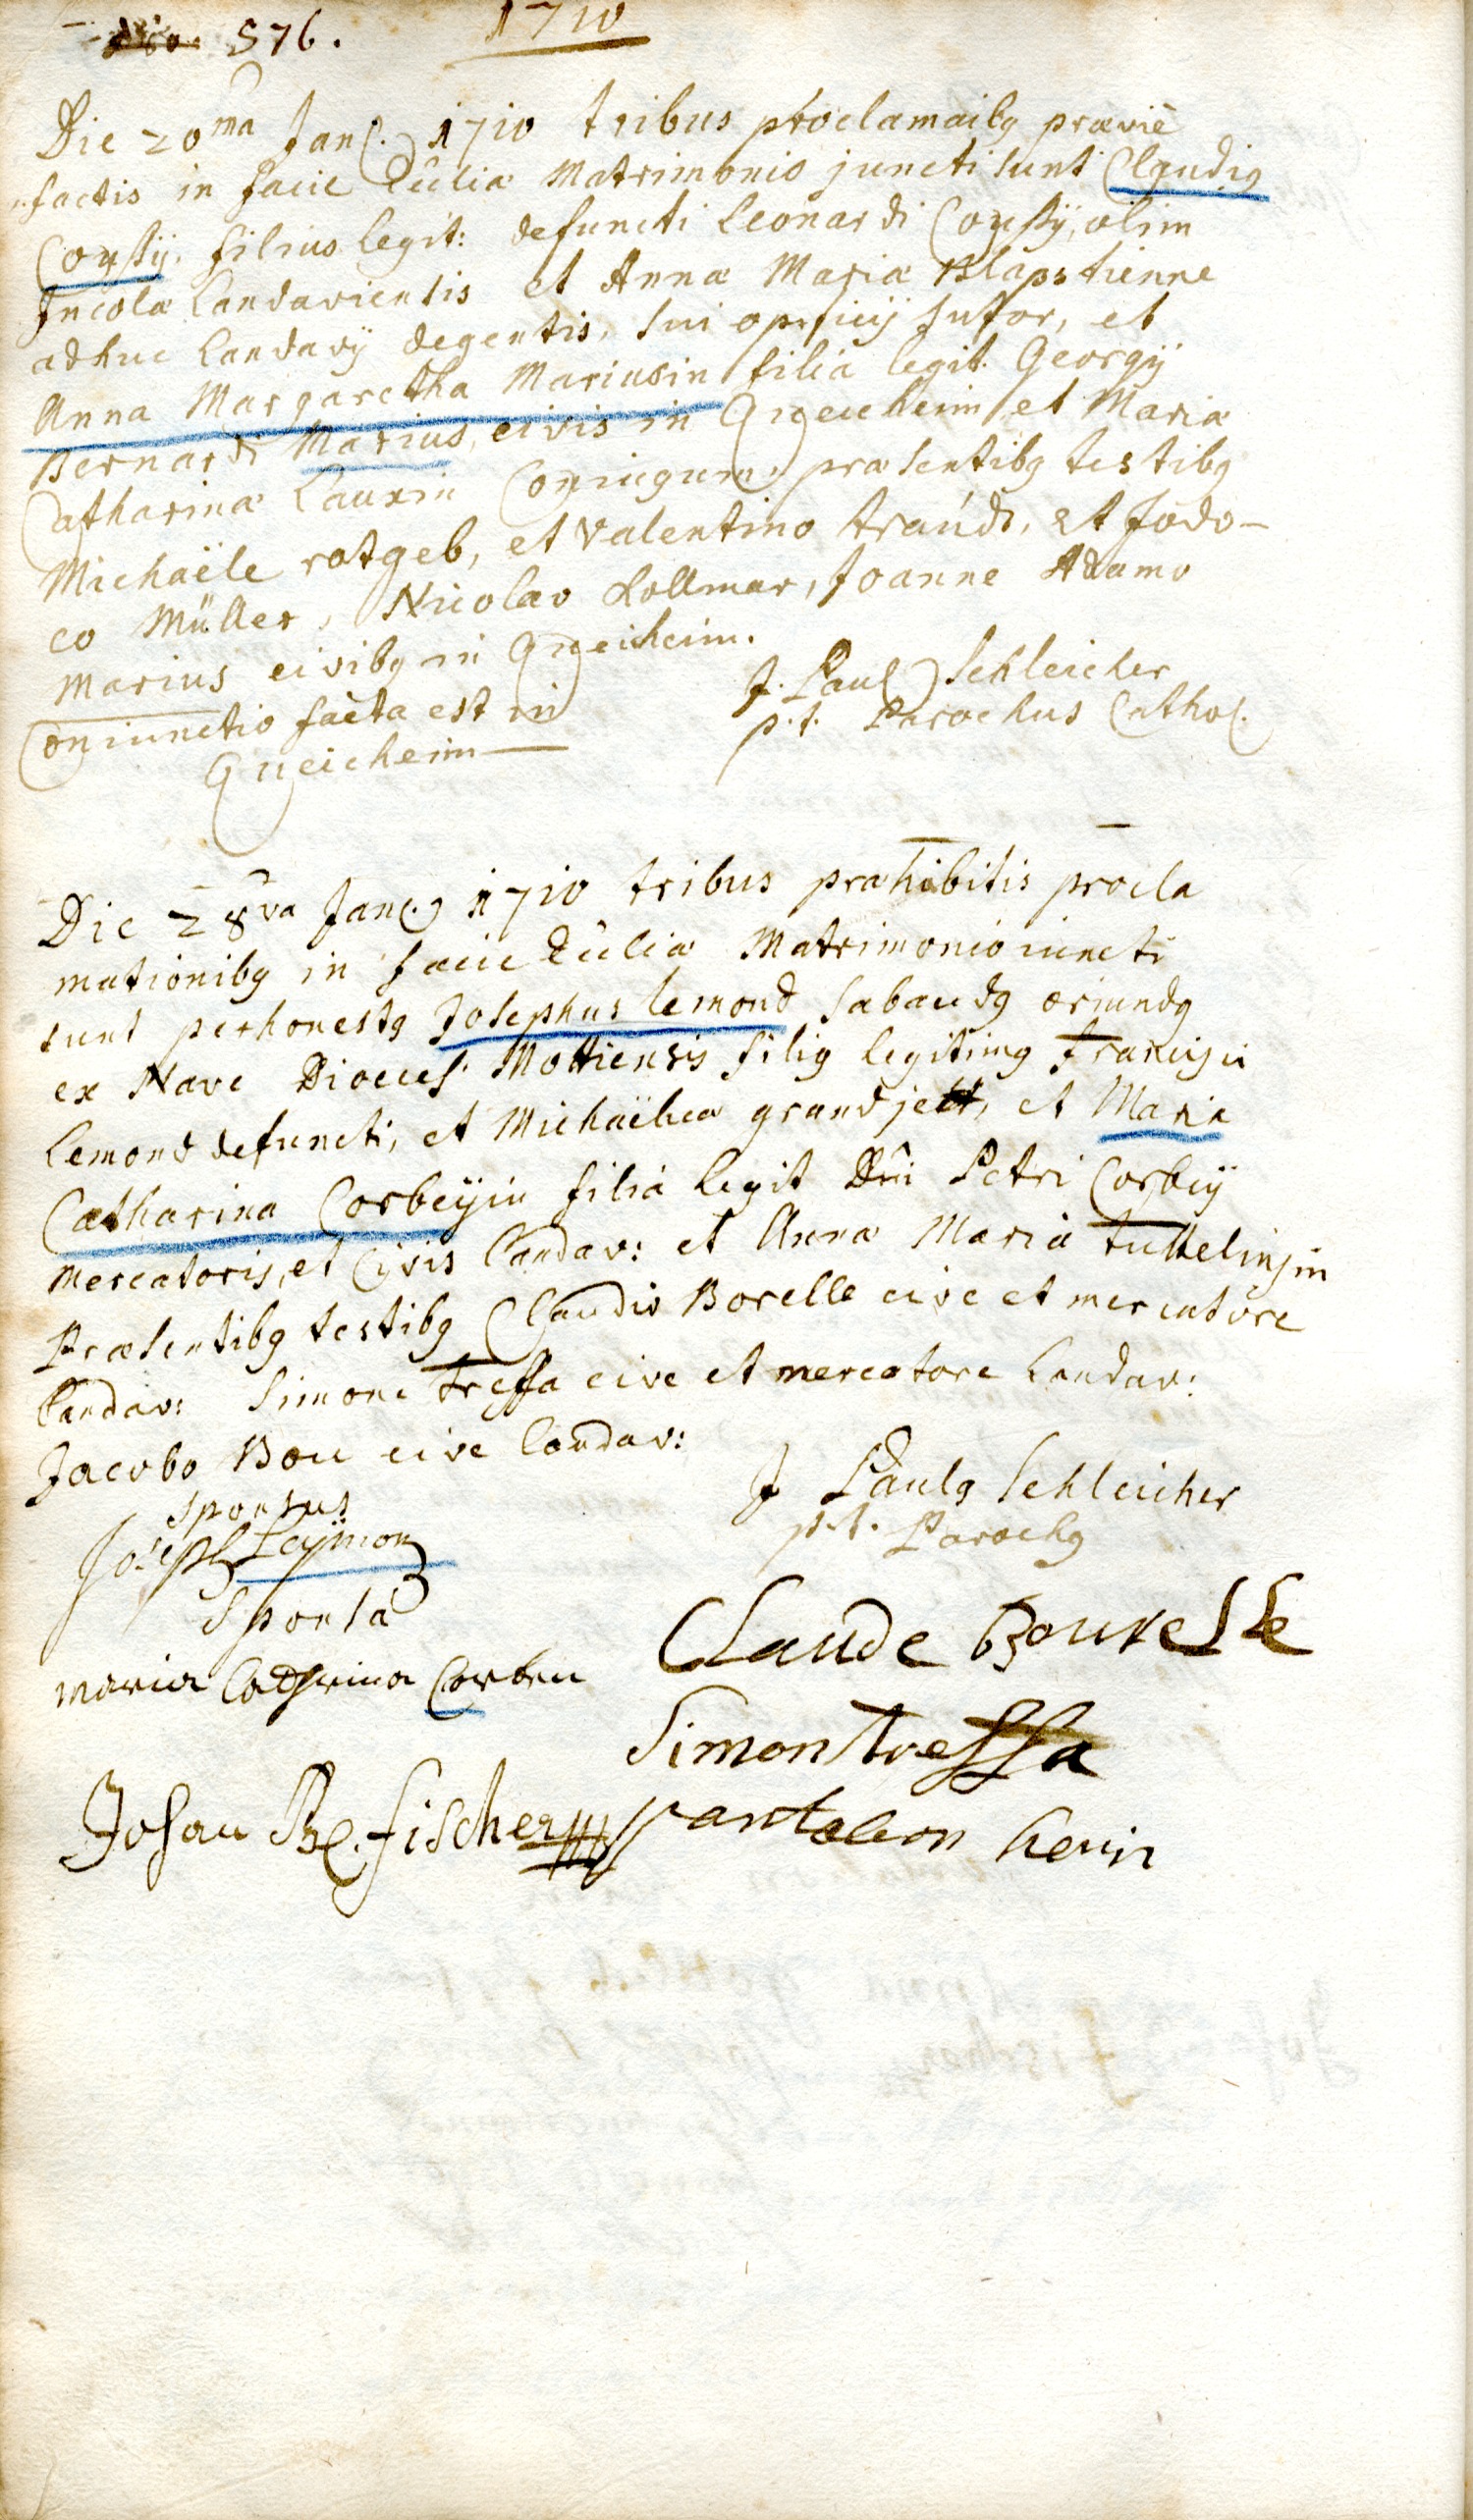 576. 1710
Die 20ma Jan. 1710 tribus proclamaibq praeviè
factis in facie Eccliae Matrimonio juncti sunt Claudiq
filius legit: defuncti Leonardi olim
Incolae Landaviensis et Anna Maria
adhuc Landavÿ degentis, sui opificÿ sutor, et
Anna Margaretha Mariusin filia legit. Georgÿ
Bernardi Marius, civis in Queicheim et Maria
Catharina Lauxin Coniugum, praesentibq testibq
Michaële rotgeb, et Valentino traudt, et Jodo-
co Müller, Nicolao Kollmar, Joanne Adamo
Marius civibq in Queicheim.
Coniunctio facta est in
Queicheim
J. Paul Schleicher
p.t. Parochus Cathol.
Die 28va Jan. 1710 tribus praehibitis procla
mationibq in facie Eccliae Matrimonio iuncti
sunt perhonestq Josephus Lemond Sabaudq oriundq
ex Nave Dioeces. filiq legitimq Francisci
Lemond defuncti, et Michaëlica et Maria
Catharina Corbeÿin filia legit Dni Petri Corbeÿ
Mercatoris, et Civis Landav: et Anna Maria tuttelinjin
Praesentibq testibq Claudio Borelle cive et mercatore
Landav: Simone treffa cive et mercatore Landav:
Jacobo Bou cive Landav:
J Paulq Schleicher
p.t. Parochq
Sponsus
Joseph Leÿmon
Sponsa
maria Catharina Corbeu
Claude Bourelle
Simon tressa
Johan Fischer
Pantaleon henin